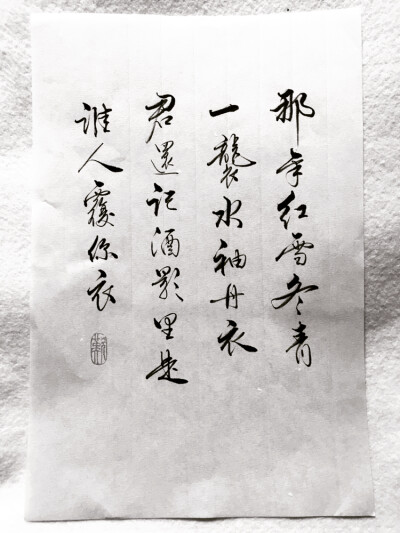 那年红雪冬青
一袭水袖丹衣
君还记酒影里是
谁人覆你衣